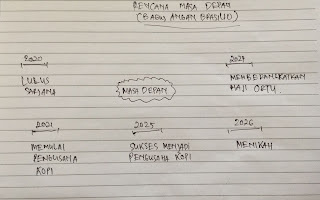 RENCANA MASA DEPAN
(BAGUS AMBAN BRASILIO)
2020
LULUS
SARJANA
MASA DEPAN
2027
MEMBERANGKATKAN
HAJI ORTU.
2021
MEMULAI
PENGUSAHA
KOPI
2025
SUKSES MENJADI
PENGUSAHA KOPI
2026
MENIKAH